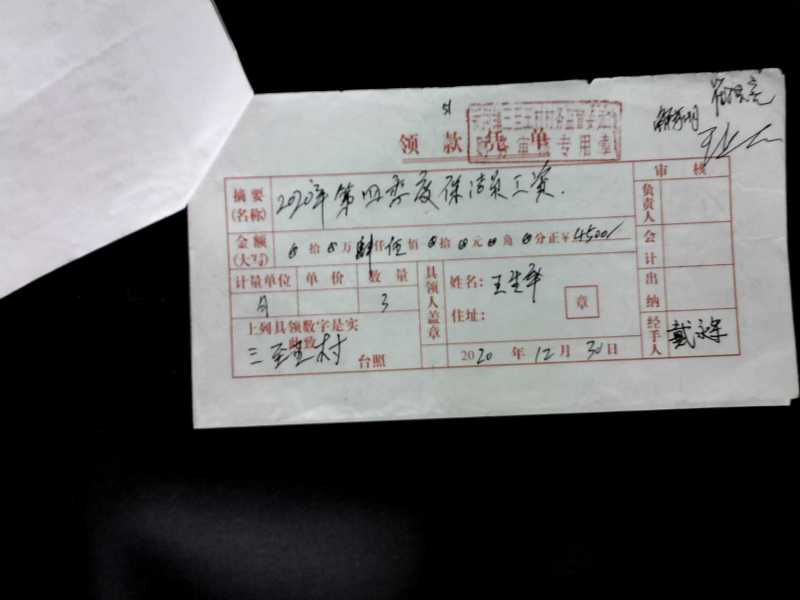 51
领款凭单
专用章
审核
摘要(名称) 2020年第四季度保洁员工资.
负责人
金额(大写) 0拾0万肆仟伍佰0拾0元0角0分正￥4500/
会计
计量单位 单价 数量
具领人盖章
姓名:
章
出纳
月 3
住址:
上列具领数字是实
此致
经手人
村 台照
2020年12月30日